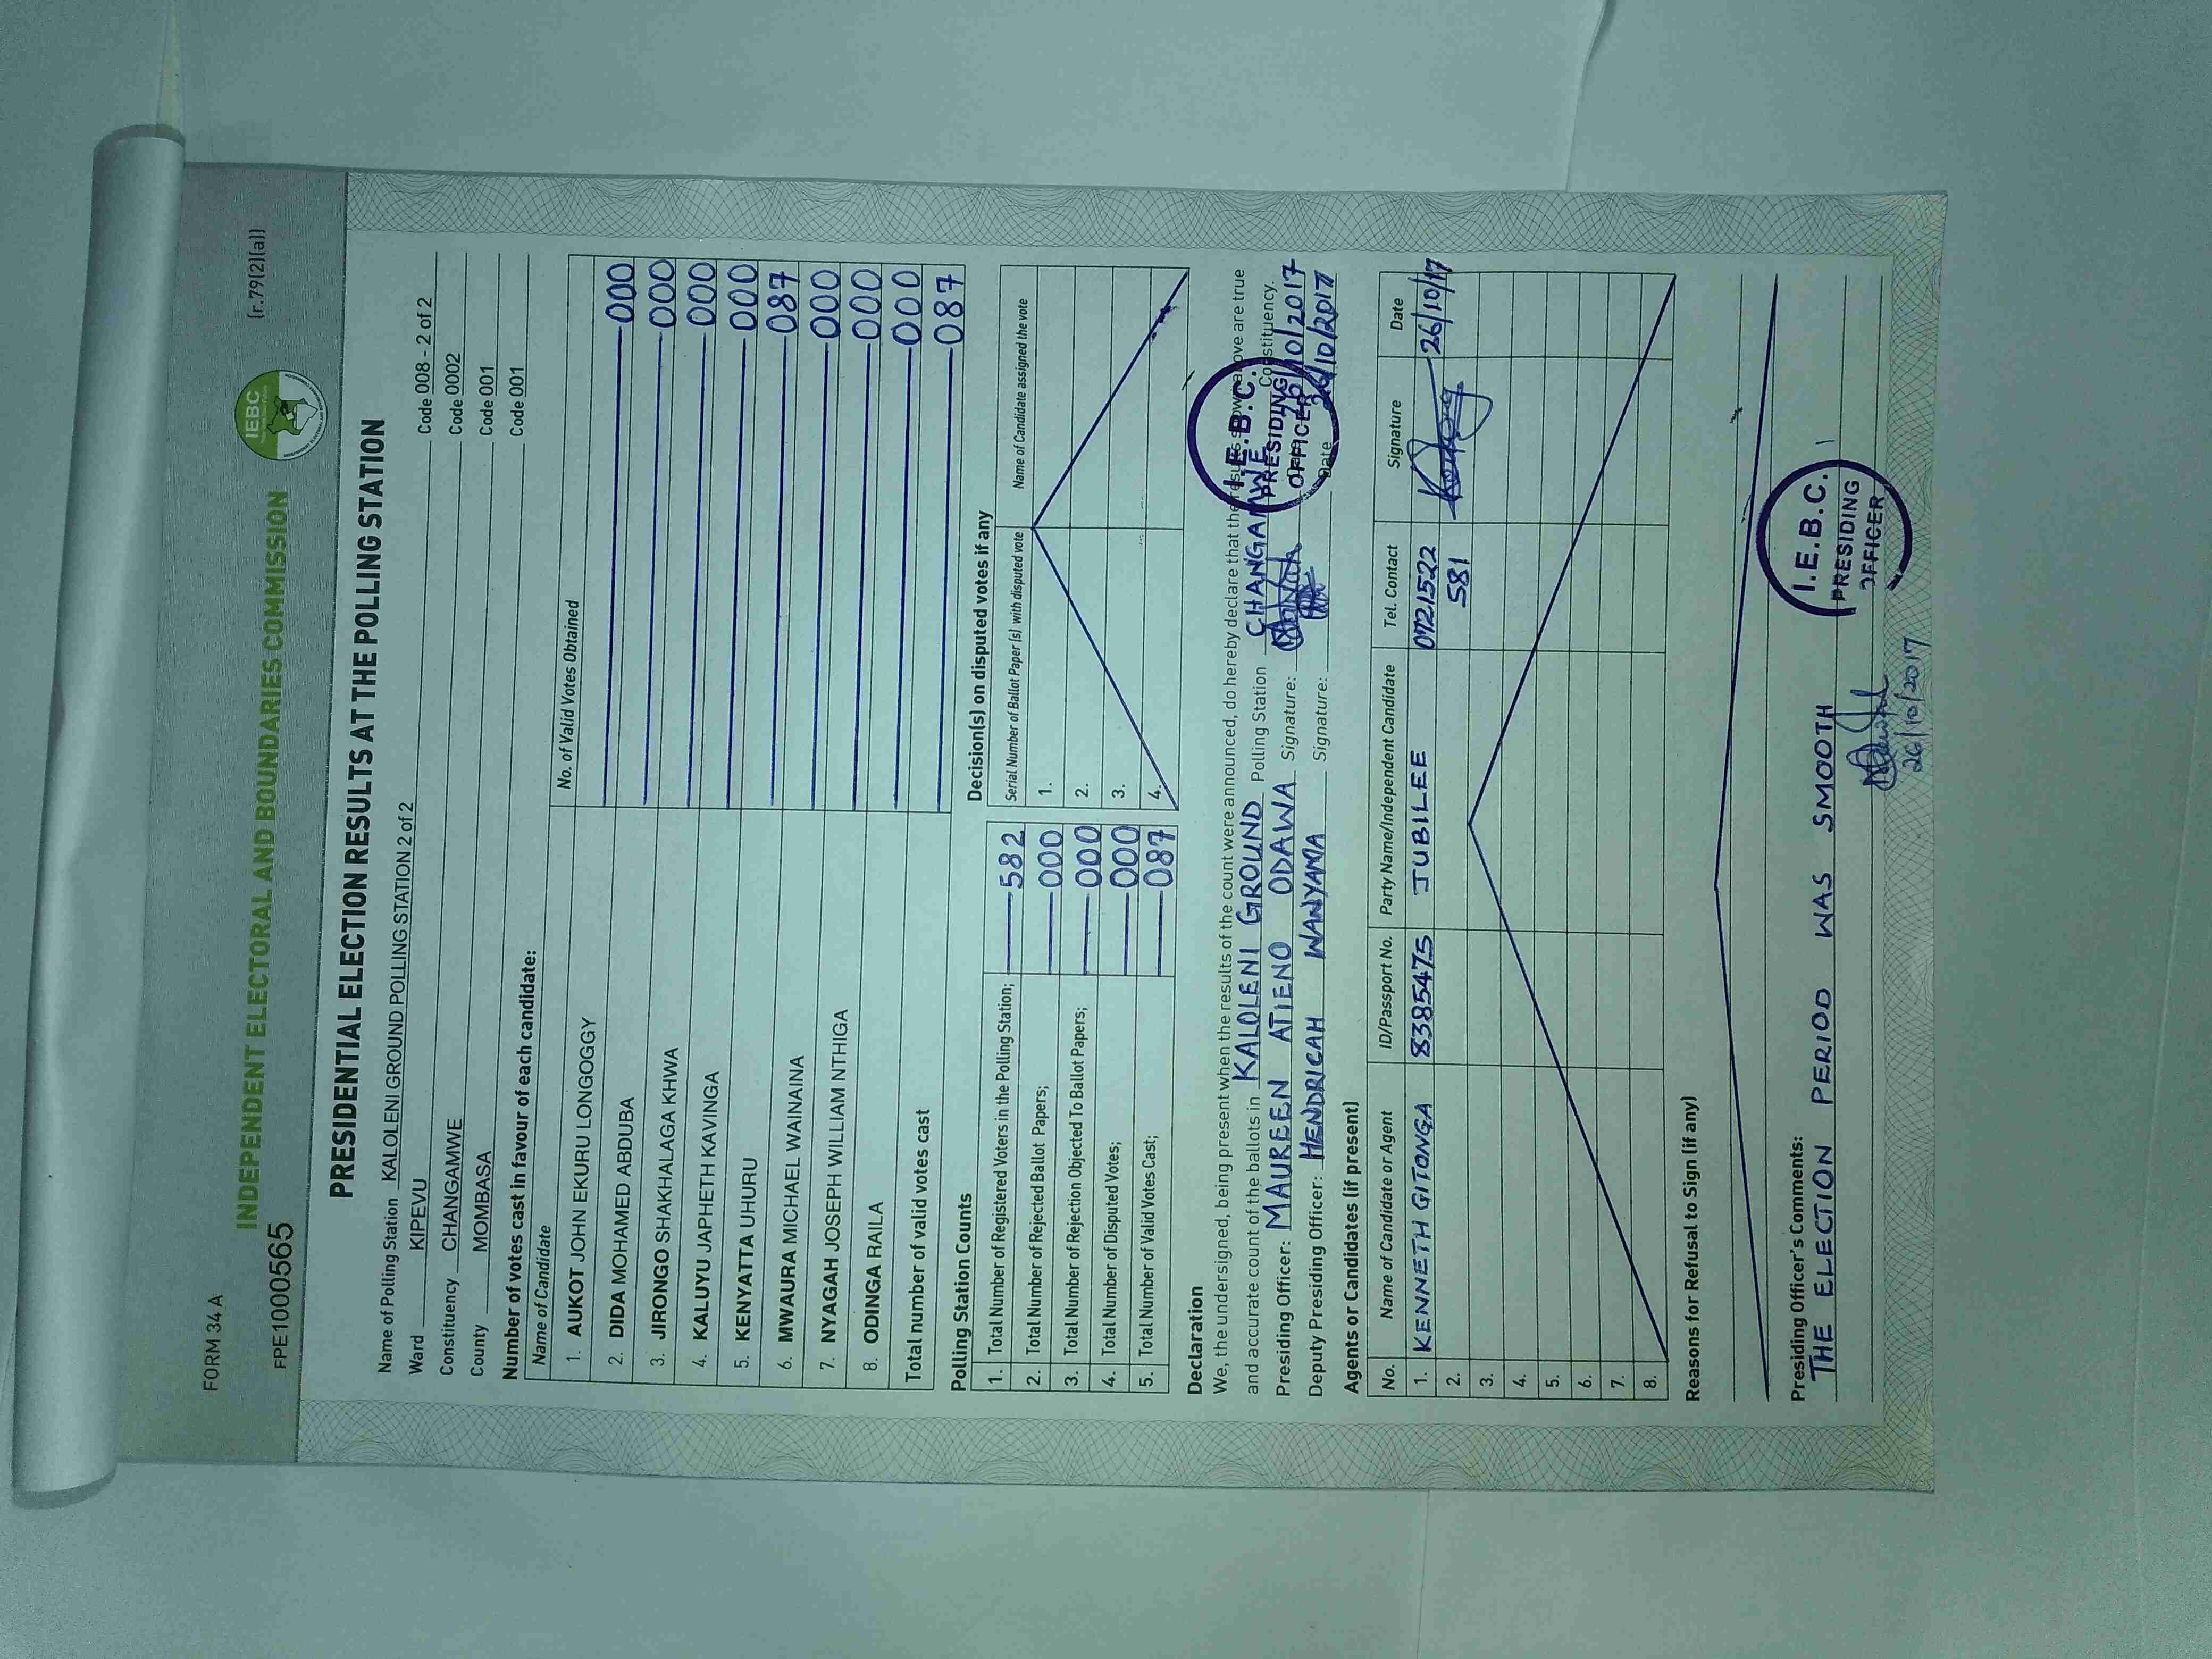 FORM 34 A
INDEPENDENT ELECTORAL AND BOUNDARIES COMMISSION
IEBC
(r.79(2)(a))
FPE1000565
PRESIDENTIAL ELECTION RESULTS AT THE POLLING STATION
Name of Polling Station KALOLENI GROUND POLLING STATION 2 of 2 Code 008 - 2 of 2
Ward KIPEVU Code 0002
Constituency CHANGAMWE Code 001
County MOMBASA Code 001
Number of votes cast in favour of each candidate:
Name of Candidate No. of Valid Votes Obtained
1. AUKOT JOHN EKURU LONGOGGY 000
2. DIDA MOHAMED ABDUBA 000
3. JIRONGO SHAKHALAGA KHWA 000
4. KALUYU JAPHETH KAVINGA 000
5. KENYATTA UHURU 087
6. MWAURA MICHAEL WAINAINA 000
7. NYAGAH JOSEPH WILLIAM NTHIGA 000
8. ODINGA RAILA 000
Total number of valid votes cast 087
Polling Station Counts
1. Total Number of Registered Voters in the Polling Station; 582
2. Total Number of Rejected Ballot Papers; 000
3. Total Number of Rejection Objected To Ballot Papers; 000
4. Total Number of Disputed Votes; 000
5. Total Number of Valid Votes Cast; 087
Decision(s) on disputed votes if any
Serial Number of Ballot Paper (s) with disputed vote Name of Candidate assigned the vote
1.
2.
3.
4.
Declaration
We, the undersigned, being present when the results of the count were announced, do hereby declare that the results shown above are true
and accurate count of the ballots in KALOLENI GROUND Polling Station CHANGAMWE Constituency.
Presiding Officer: MAUREEN ATIENO ODAWA Signature: Date 26/10/2017
Deputy Presiding Officer: HENDRICAH WANYAMA Signature: Date 26/10/2017
I.E.B.C.
PRESIDING
OFFICER
Agents or Candidates (if present)
No. Name of Candidate or Agent ID/Passport No. Party Name/Independent Candidate Tel. Contact Signature Date
1. KENNETH GITONGA 8385475 JUBILEE 0721522 26/10/17
2. 581
3.
4.
5.
6.
7.
8.
Reasons for Refusal to Sign (if any)
Presiding Officer's Comments:
THE ELECTION PERIOD WAS SMOOTH
I.E.B.C.
PRESIDING
OFFICER
26/10/2017